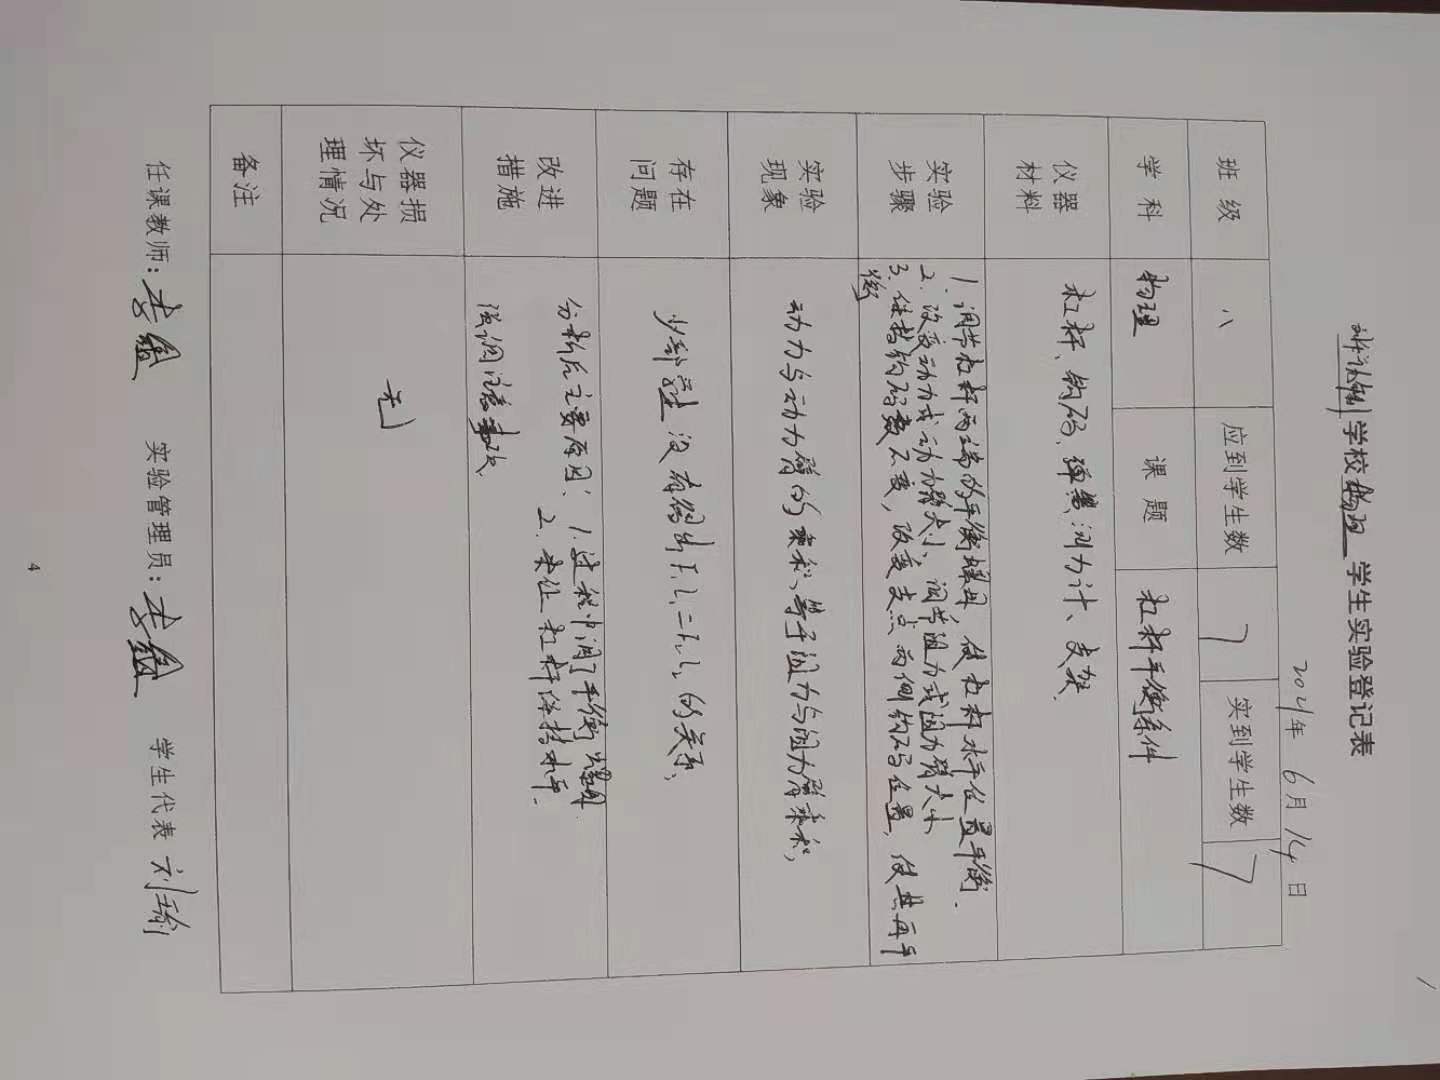 学校物理 学生实验登记表
2021年 6月 14日
班级 八 应到学生数 7 实到学生数 7
学科 物理 课题 杠杆平衡条件
仪器材料 杠杆、钩码、弹簧测力计、支架.
实验步骤
1. 调节杠杆两端的平衡螺母,使杠杆水平位置平衡.
2. 改变动力或动力臂大小,调节阻力或阻力臂大小
3. 保持钩码数不变,改变支点两侧钩码位置,使其再平
衡
实验现象 动力与动力臂的乘积,等于阻力与阻力臂乘积,
存在问题 少部 没有得出F₁L₁=F₂L₂的关系,
改进措施
分析后主要原因:1. 过程中调了平衡螺母.
2. 未让杠杆保持水平.
强调注意事项.
仪器损坏与处理情况 无
备注
任课教师: 李 实验管理员: 李 学生代表 刘瑜
4